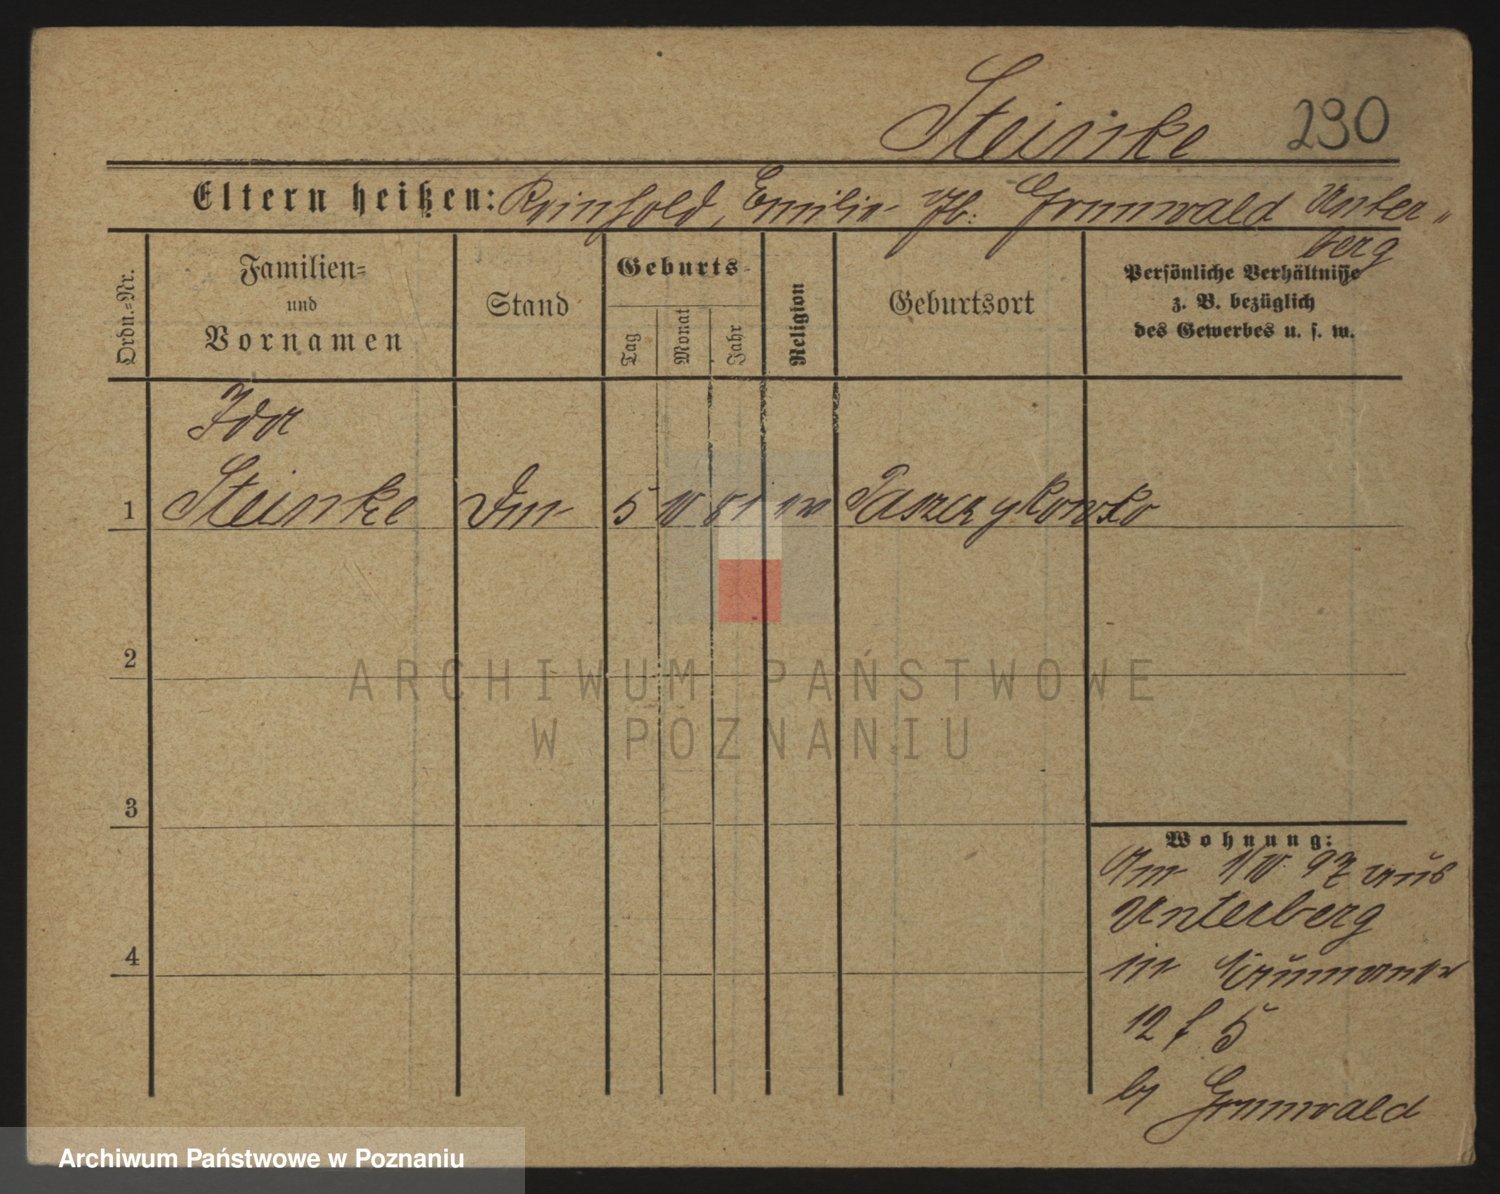 Steinke 230
Eltern heißen: Reinhold, Emilie geb. Grunwald Unter-
berg
Ordn.-Nr.
Familien-
und
Vornamen
Stand
Geburts-
Tag
Monat
Jahr
Religion
Geburtsort
Persönliche Verhältnisse
z. B. bezüglich
des Gewerbes u. s. w.
Ida
1 Steinke 5 10 81 ev
2
3
4
Wohnung:
Am 1/10. 97 aus
Unterberg
in
12 f 5
b/ Grunwald
ARCHIWUM PAŃSTWOWE
W POZNANIU
Archiwum Państwowe w Poznaniu